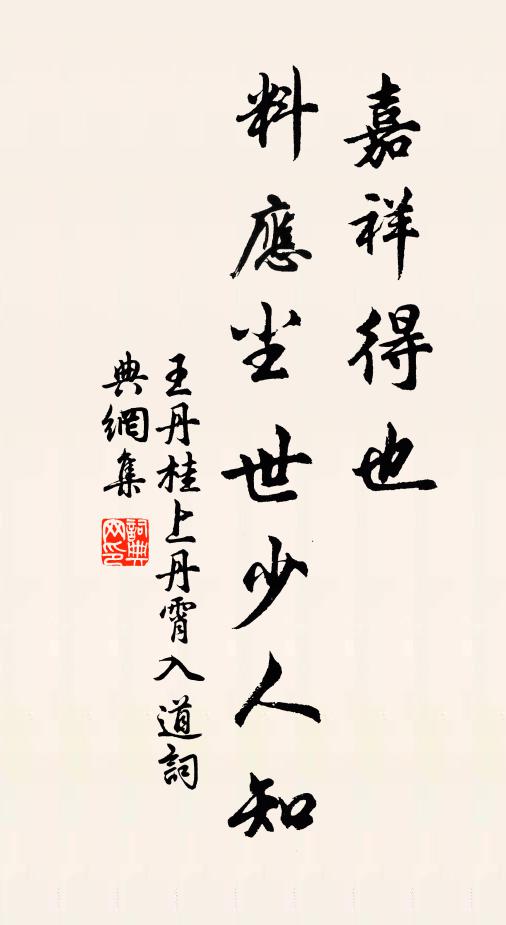 嘉祥得也
料應尘世少人知
王丹桂上丹霄入道詞
典網集
詞典网印